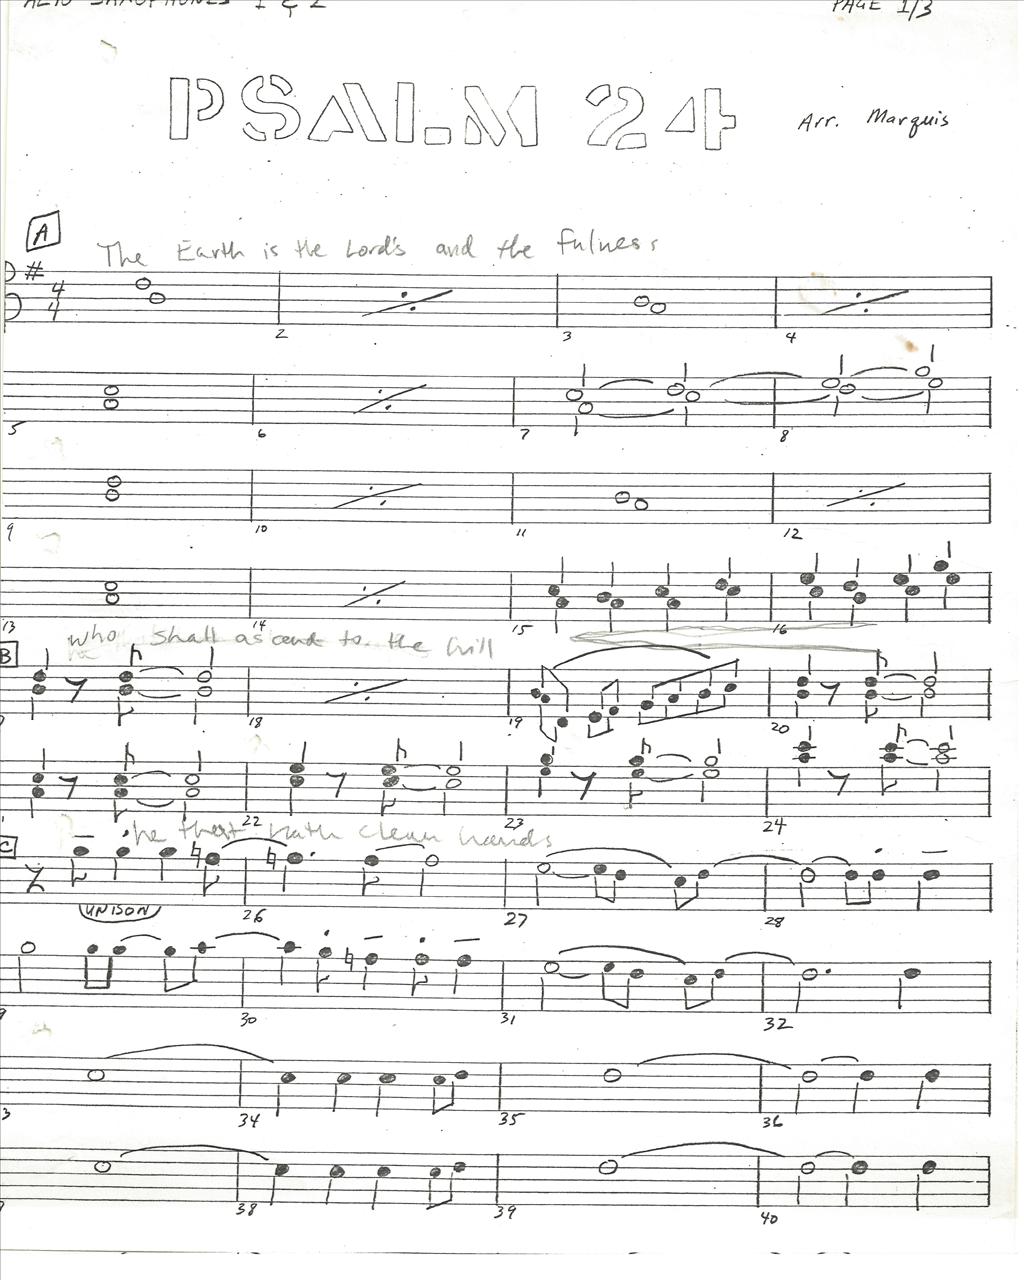 ALTO SAXOPHONES 1 & 2
PAGE 1/3
PSALM 24
Arr. Marquis
A
The Earth is the Lord's and the fulness
4
4
2
3
4
5
6
7
8
9
10
11
12
13
14
15
16
who shall ascend to the hill
B
18
19
20
22
23
24
he that hath clean hands
C
UNISON
26
27
28
30
31
32
3
34
35
36
38
39
40